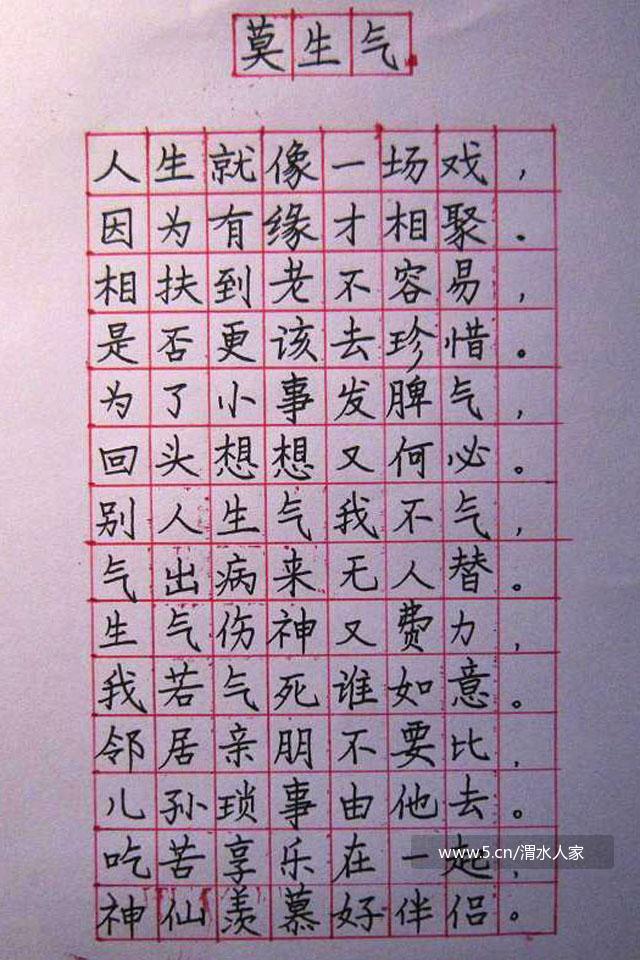 莫生气
人生就像一场戏，
因为有缘才相聚．
相扶到老不容易，
是否更该去珍惜。
为了小事发脾气，
回头想想又何必。
别人生气我不气，
气出病来无人替。
生气伤神又费力，
我若气死谁如意。
邻居亲朋不要比，
儿孙琐事由他去。
吃苦享乐在一起，
神仙羡慕好伴侣。
www.5.cn/渭水人家